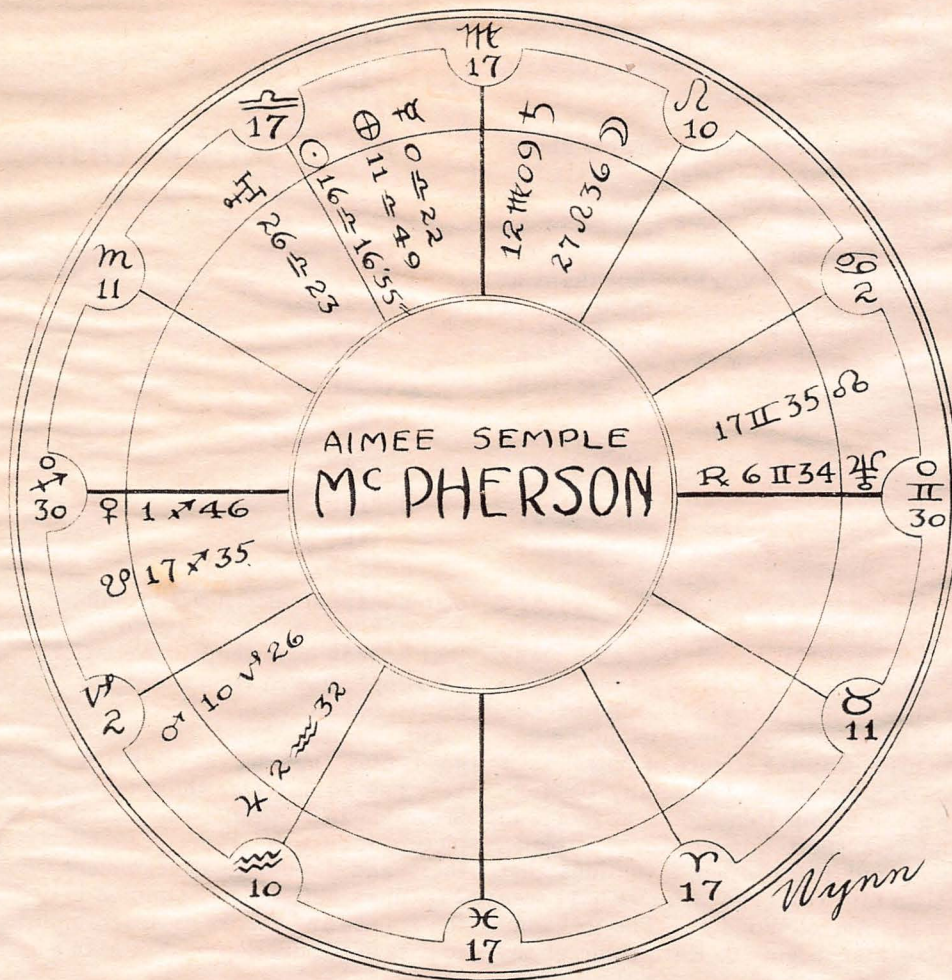 ♍
17
♌
10
♋
2
0
♊
30
♉
11
♈
17
♓
17
♒
10
♑
2
0
♐
30
♏
11
♎
17
♅ 26♎23
☉ 16♎16'55"
⊕ 11♎49
☿ 0♎22
12♍09 ♄
27♌36 ☽
17♊35 ☊
℞ 6♊34 ♆
♀ 1♐46
☋ 17♐35
♂ 10♑26
♃ 2♒32
AIMEE SEMPLE
MC PHERSON
Wynn